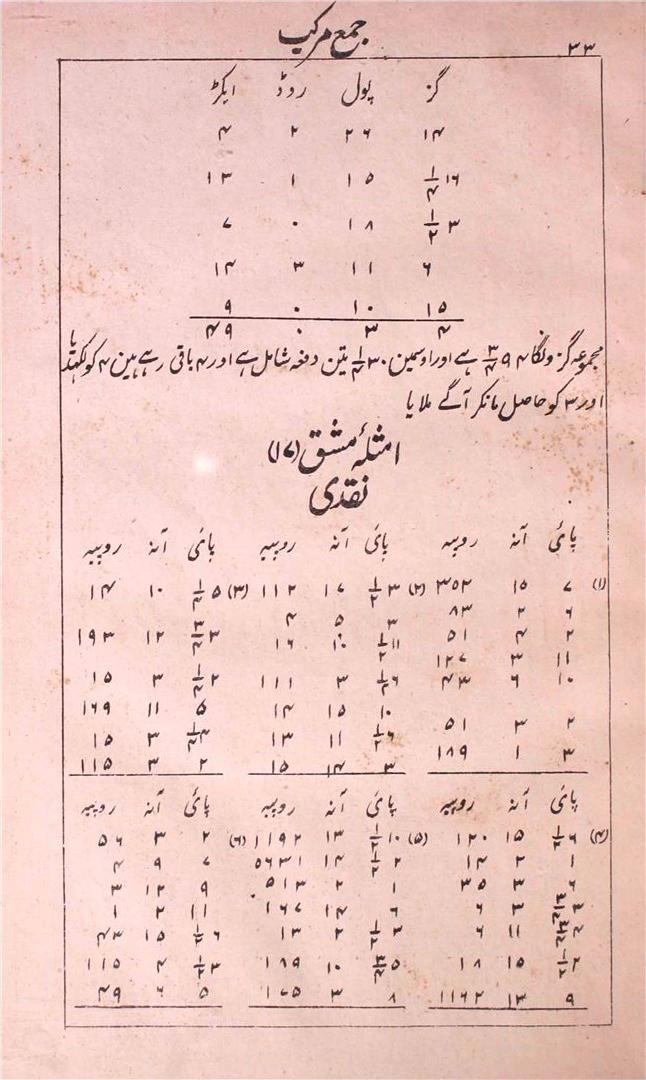 ۳۳ جمع مرکب
گز پول روڈ ایکڑ
۱۴ ۲۶ ۲ ۴
۱۶ ۱/۴ ۱۵ ۱ ۱۳
۳ ۱/۲ ۱۸ ۰ ۷
۶ ۱۱ ۳ ۱۴
۱۵ ۱۰ ۰ ۹
۴ ۳ ۰ ۴۹
مجموعہ گزونکا ۹۴ ۳/۴ ہے اور اوسمین ۳۰ ۱/۴ تین دفعہ شامل ہے اور ۴ باقی رہے ہین ۴ کو لکھدیا
اور ۳ کو حاصل مانکر آگے ملایا
امثلۂ مشق (۱۷)
نقدی
پائی آنہ روپیہ پائی آنہ روپیہ پائی آنہ روپیہ
(۱) ۷ ۱۵ ۳۵۲ (۲) ۳ ۱/۲ ۱۷ ۱۱۲ (۳) ۵ ۱/۴ ۱۰ ۱۴
۶ ۲ ۸۳ ۳ ۵ ۴ ۳ ۳/۴ ۱۲ ۱۹۳
۲ ۴ ۵۱ ۱۱ ۱/۲ ۱۰ ۱۶
۱۱ ۳ ۱۲۷ ۶ ۱/۴ ۳ ۱۱۱ ۲ ۱/۲ ۳ ۱۵
۱۰ ۶ ۴۳ ۱۰ ۱۵ ۱۴ ۵ ۱۱ ۱۶۹
۲ ۳ ۵۱ ۶ ۱/۲ ۱۱ ۱۳ ۳ ۱/۴ ۳ ۱۵
۳ ۱ ۱۸۹ ۳ ۱۴ ۱۵ ۲ ۳ ۱۱۵
پائی آنہ روپیہ پائی آنہ روپیہ پائی آنہ روپیہ
(۴) ۶ ۱/۲ ۱۵ ۱۲۰ (۵) ۱۰ ۱/۲ ۱۳ ۱۱۹۲ (۶) ۲ ۳ ۵۶
۱ ۲ ۱۴ ۲ ۱/۲ ۱۴ ۵۶۳۱ ۷ ۹ ۴
۶ ۳ ۳۵ ۱ ۲ ۵۱۳ ۹ ۱۲ ۳
۳ ۶ ۶ ۱۴ ۱۶۷ ۱۱ ۲ ۱
۱۱ ۶ ۳ ۱/۲ ۲ ۱۳ ۶ ۱/۲ ۱۵ ۴۳
۲ ۱/۲ ۱۵ ۱۸ ۵ ۳/۴ ۱۰ ۱۸۹ ۳ ۱/۲ ۴ ۱۱۵
۹ ۱۳ ۱۱۶۲ ۸ ۳ ۱۷۵ ۵ ۶ ۴۹